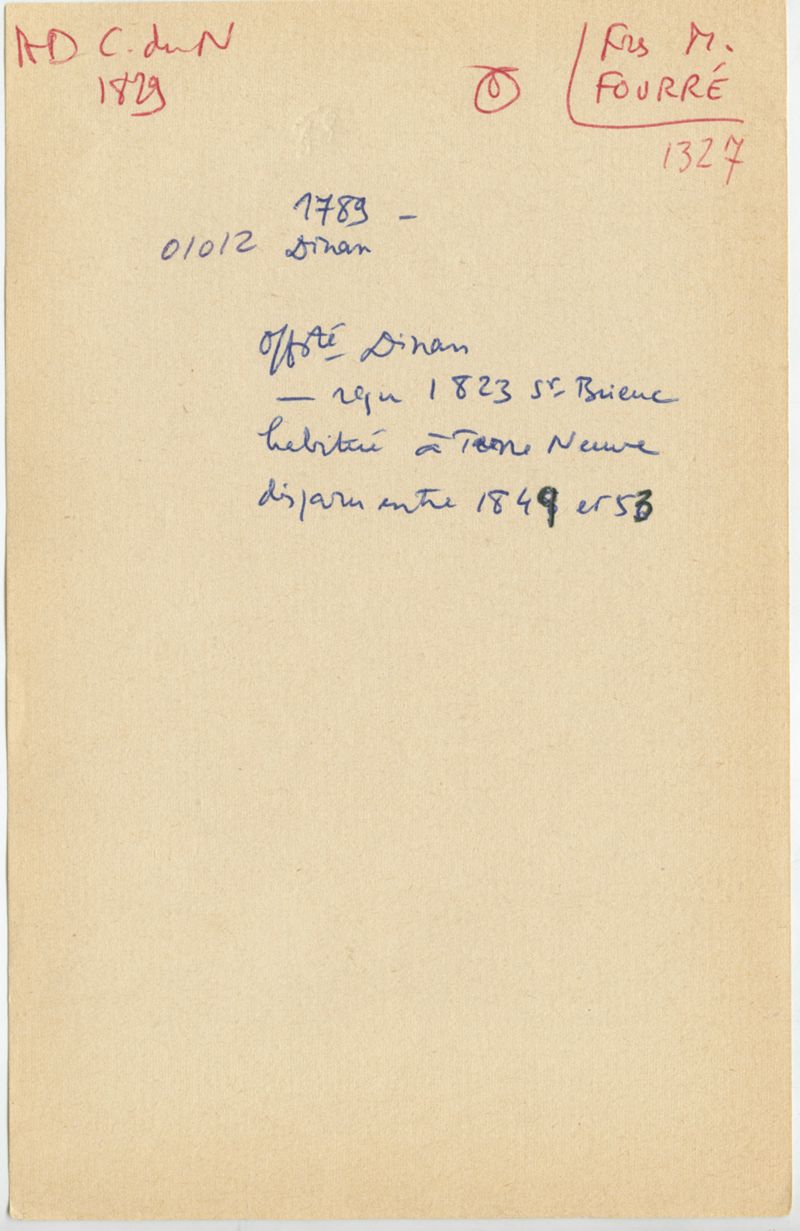 AD C. du N
1829
Frs M.
FOURRÉ
1327
1789 -
01012 Dinan
Offté Dinan
— reçu 1823 St-Brieuc
habitué à Terre Neuve
disparu entre 1849 et 53